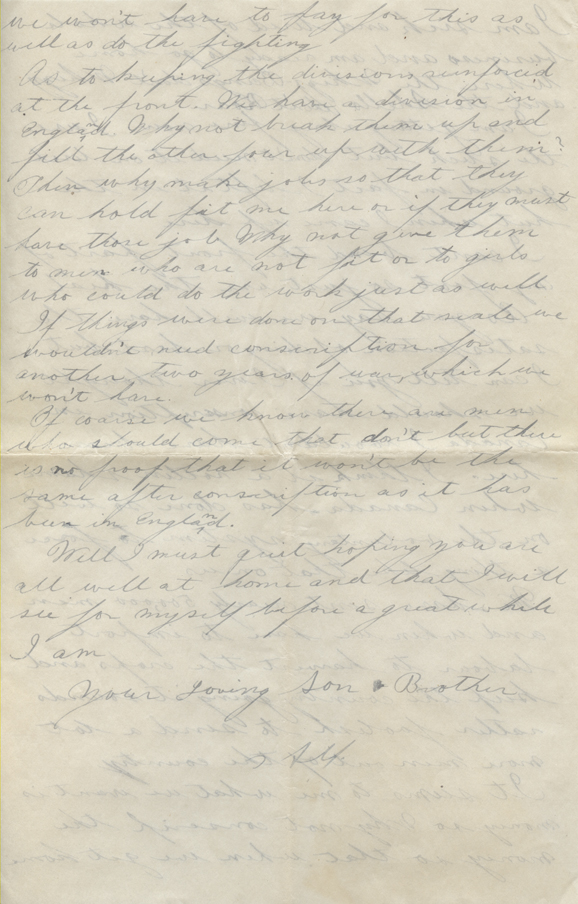 we won't have to pay for this as
well as do the fighting
As to keeping the divisions reinforced
at the front. We have a division in
England Why not break them up and
fill the other four up with them?
Then why make jobs so that they
can hold fit me here or if they must
have those job Why not give them
to men who are not fit or to girls
who could do the work just as well
If things were done on that scale we
wouldn't need conscription for
another two years of war, which we
won't have.
Of coarse we know there are men
who should come that don't but there
is no proof that it won't be the
same after conscription as it has
been in England.
Well I must quit hoping you are
all well at home and that I will
see for myself before a great while
I am
Your Loving Son & Brother